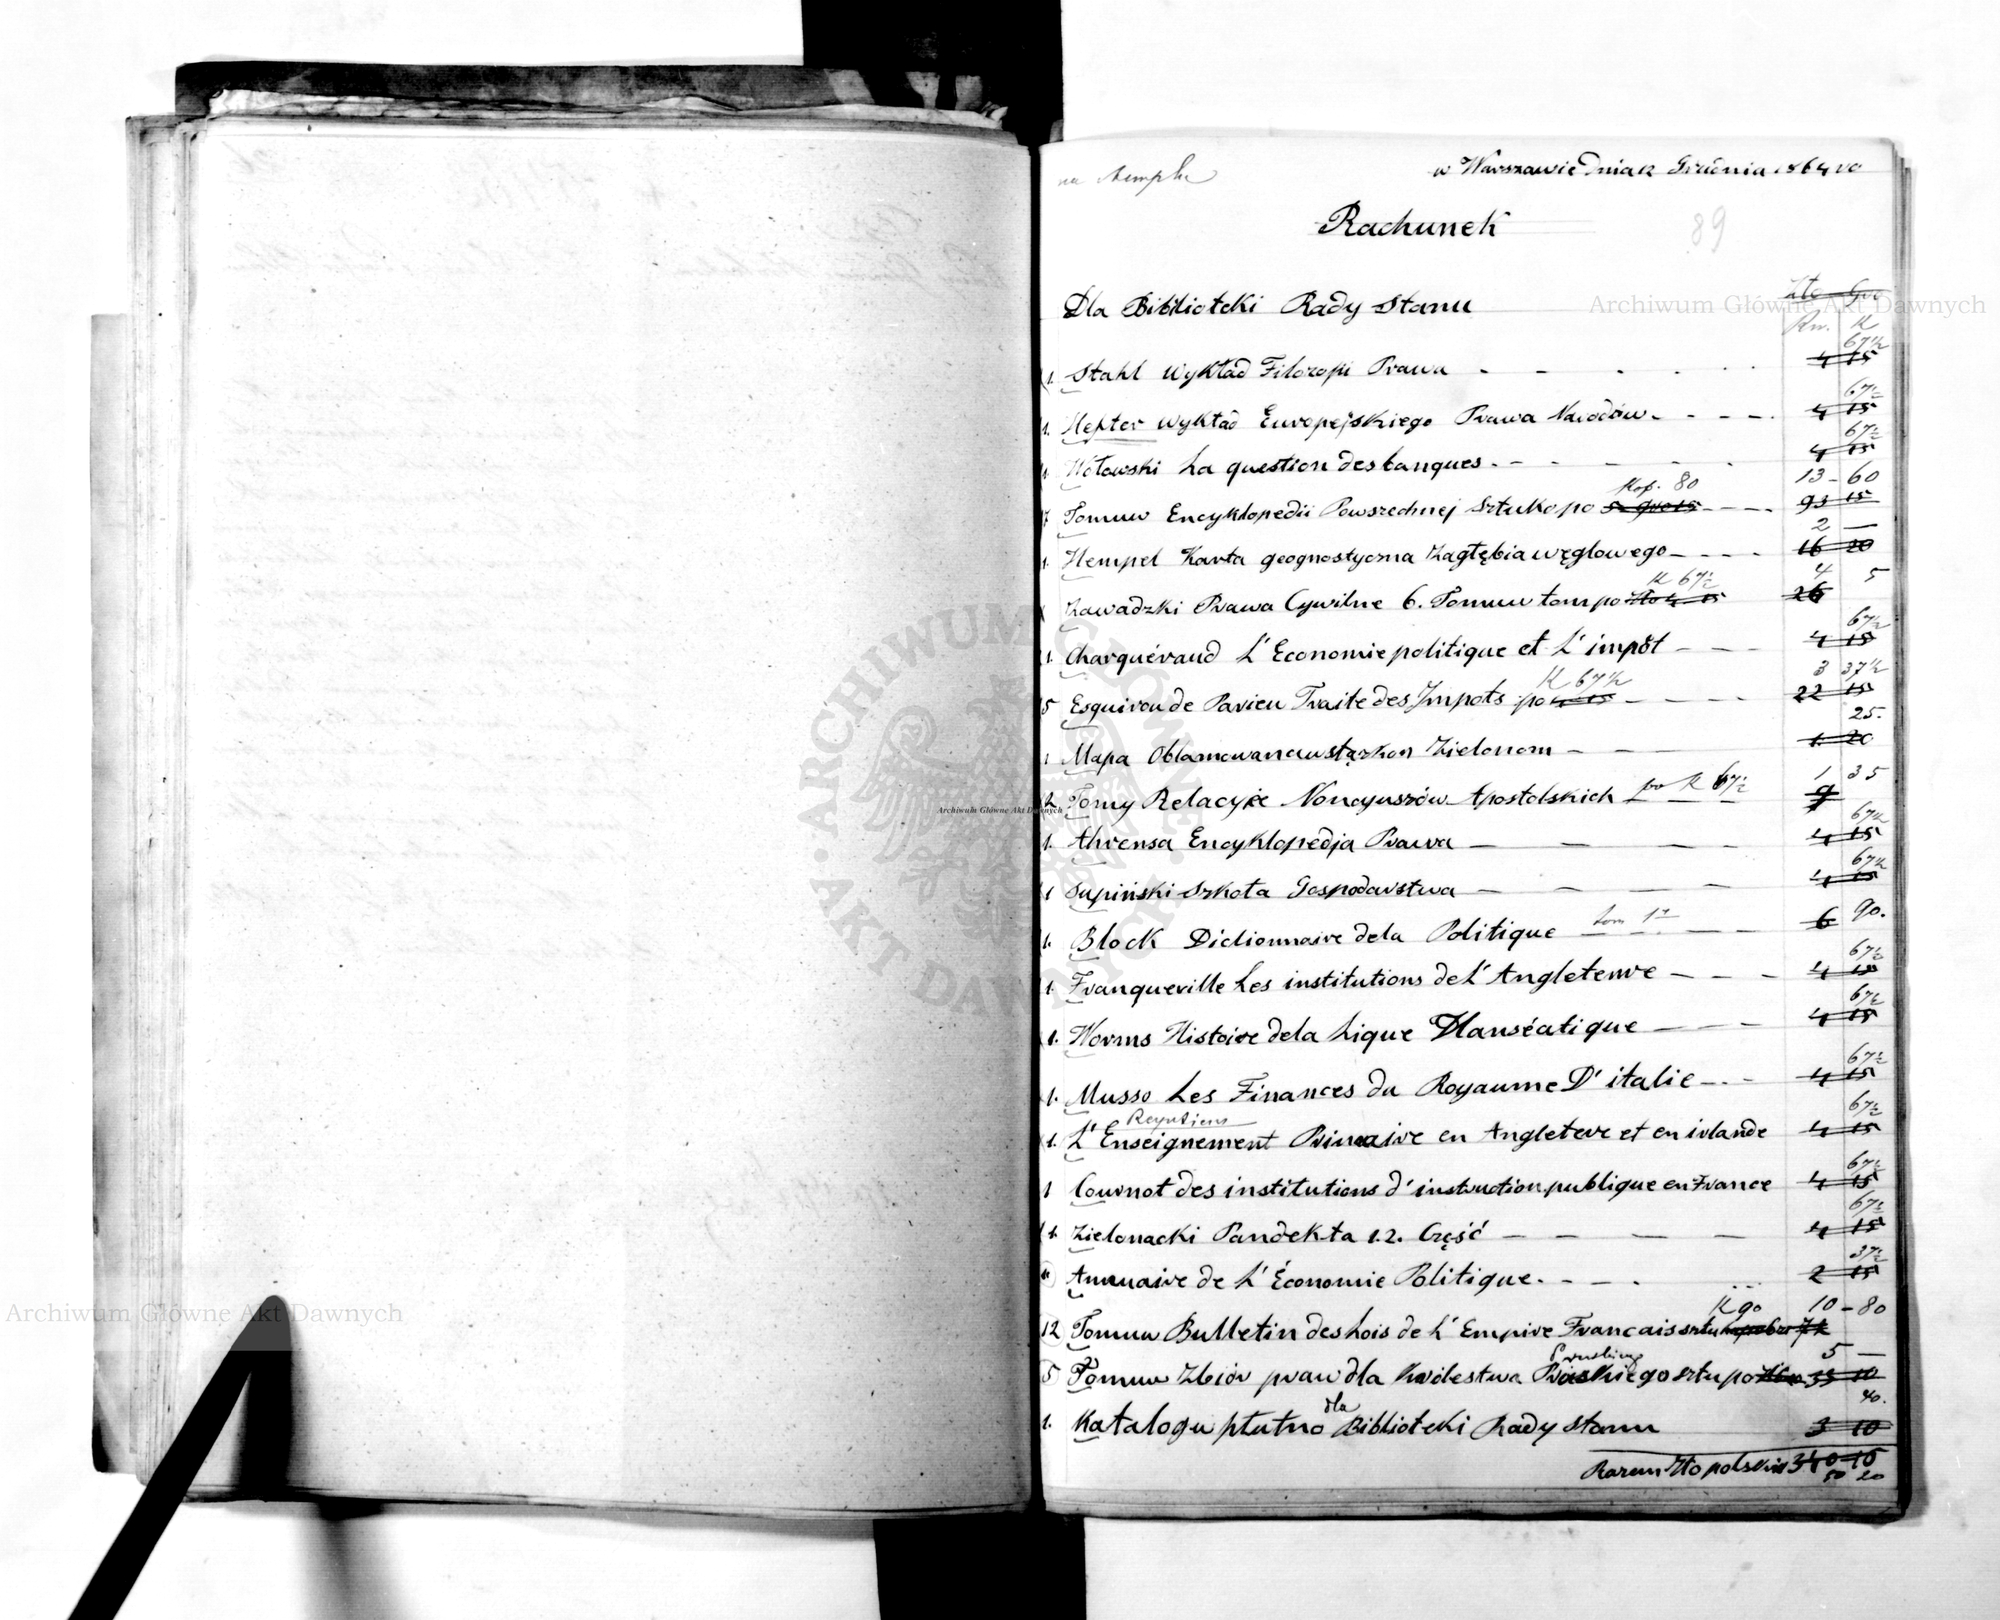 w Warszawie Dnia 12 Grudnia 1864 ro
Rachunek
89
Dla Biblioteki Rady Stanu
Złto Gro
Rs. K
67½
1. Stahl Wykład Filozofii Prawa 4 15
67½
1. Hefter Wykład Europejskiego Prawa Narodów 4 15
67½
1. Wołowski La question des banques 4 15
Kop. 80 13 - 60
17 Tomuw Encyklopedii Powszechnej Sztuko po 5 gro 15 93 15
2 —
1. Hempel Karta geognostyczna Zagłębia węglowego 16 20
K 67½ 4 5
Zawadzki Prawa Cywilne 6. Tomuw tom po Złto 4 15 26
67½
1. Charguéraud L'Economie politique et L'impôt 4 15
K 67½ 3 37½
5 Esquirou de Parieu Traite des Impots po 4 15 22 15
25.
1 Mapa Oblamowana wstązkon Zielonom 1 20
po K 67½ 1 35
2 Tomy Relacyie Noncyuszów Apostolskich 9
67½
1. Ahrensa Encyklopedja Prawa 4 15
67½
1 Supiński Szkoła Gospodarstwa 4 15
tom 1y 90.
1. Block Dictionnaire dela Politique 6
67½
1. Franqueville Les institutions de L'Angleterre 4 15
67½
1. Worms Histoire dela Lique Hanséatique 4 15
67½
1. Musso Les Finances du Royaume D'italie 4 15
67½
1. L'Enseignement Primaire en Angletere et en irlande 4 15
67½
1 Cournot des institutions d'instruction publique en France 4 15
67½
1. Zielonacki Pandekta 1.2. Część 4 15
37½
Annuaire de L'Économie Politique 2 15
K 90 10 - 80
12 Tomuw Bulletin des Lois de L'Empire Francais sztu 72
Pruskiego 5 —
5 Tomuw Zbiór praw dla Królestwa Pruskiego sztu po 33 10
40.
1. Katalogu płutno dla Biblioteki Rady Stanu 3 10
Razem Złto polskie 340 15
50 20
Archiwum Główne Akt Dawnych
Archiwum Główne Akt Dawnych
Archiwum Główne Akt Dawnych
ARCHIWUM GŁÓWNE AKT DAWNYCH